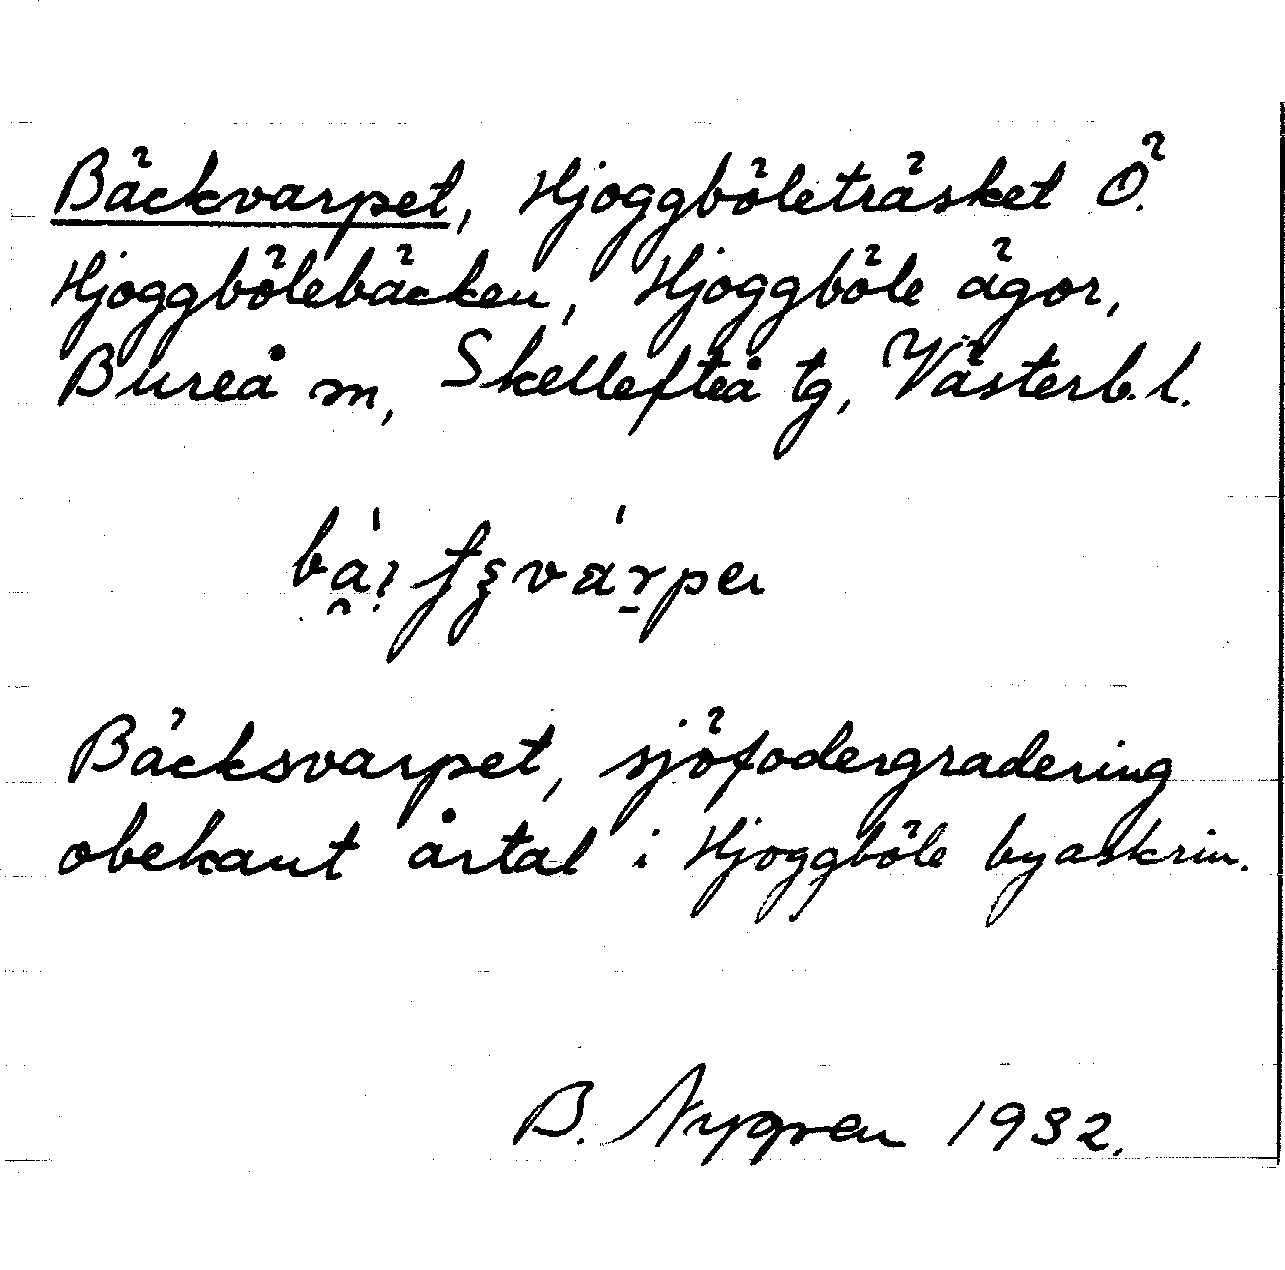 Bäckvarpet, Hjoggböleträsket Ö.
Hjoggbölebäcken, Hjoggböle ägor,
Bureå sn, Skellefteå tg, Västerb. l.
Bäcksvarpet, sjöfodergradering
obekant årtal i Hjoggböle byaskrin.
B. Nygren 1932.